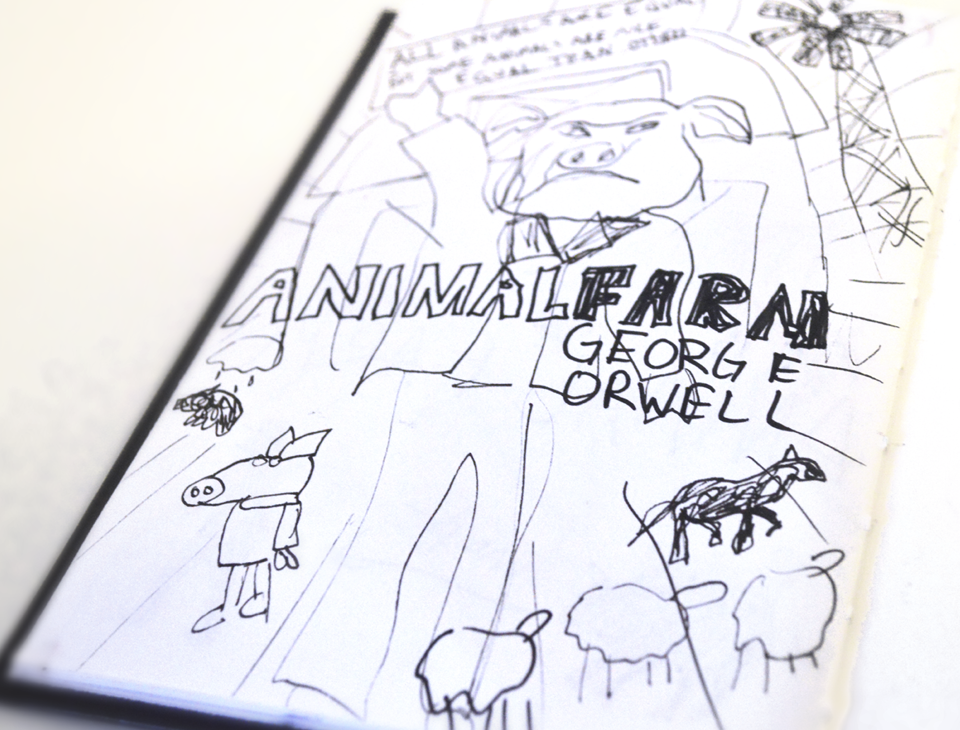 ALL ANIMALS ARE EQUAL
BUT SOME ANIMALS ARE MORE
EQUAL THAN OTHERS
ANIMAL FARM
GEORGE
ORWELL